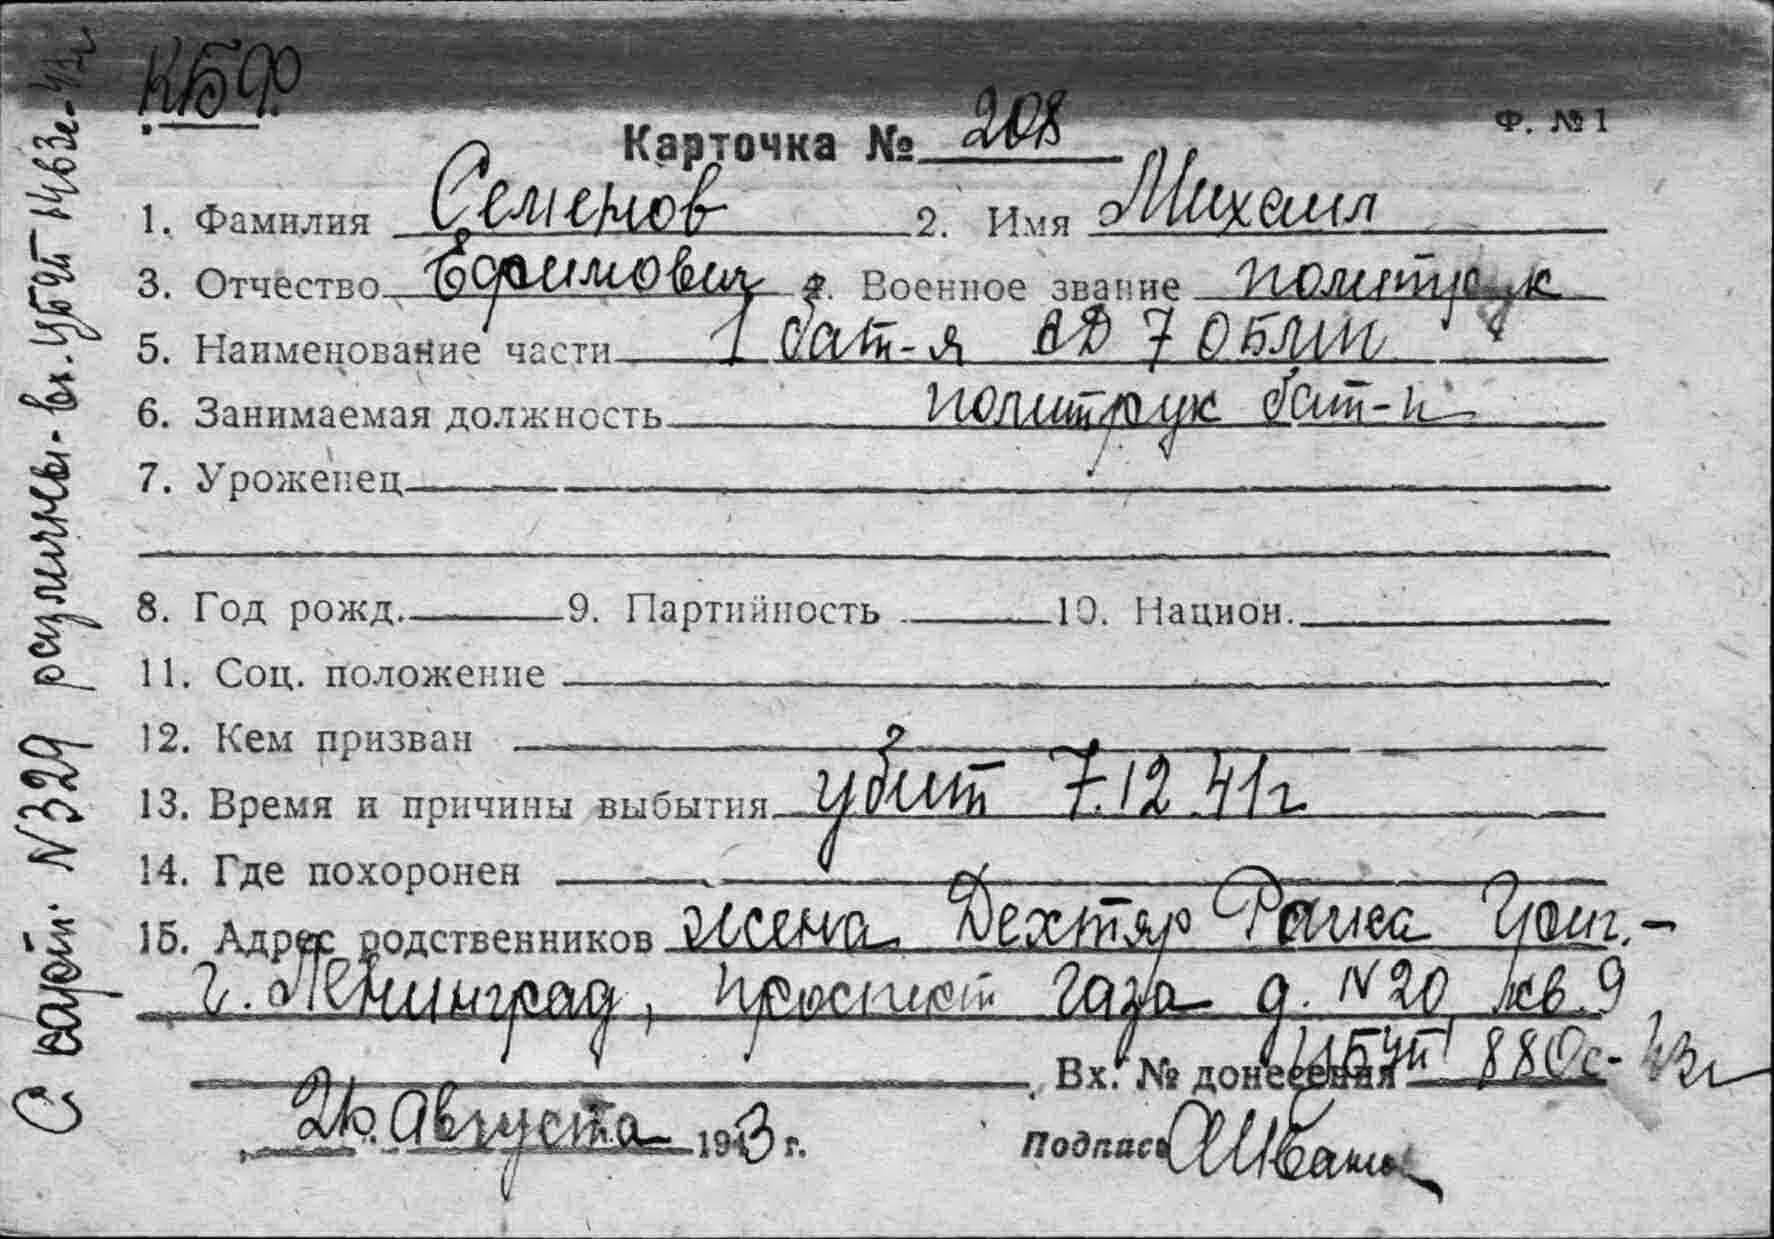 КБФ
Ф. №1
Карточка № 208
1. Фамилия Семенов 2. Имя Михаил
3. Отчество Ефимович 4. Военное звание политрук
5. Наименование части 1 бат-я 7 ОБМП
6. Занимаемая должность политрук бат-и
7. Уроженец
8. Год рожд. 9. Партийность 10. Национ.
11. Соц. положение
12. Кем призван
13. Время и причины выбытия убит 7.12.41г
14. Где похоронен
15. Адрес родственников жена Дехтяр Раиса
г. Ленинград, проспект Газа д. N20 кв. 9
Вх. № донесения 880с-43г
26. Августа 1943 г.
Подпись
С карт. N329 различны-вх.